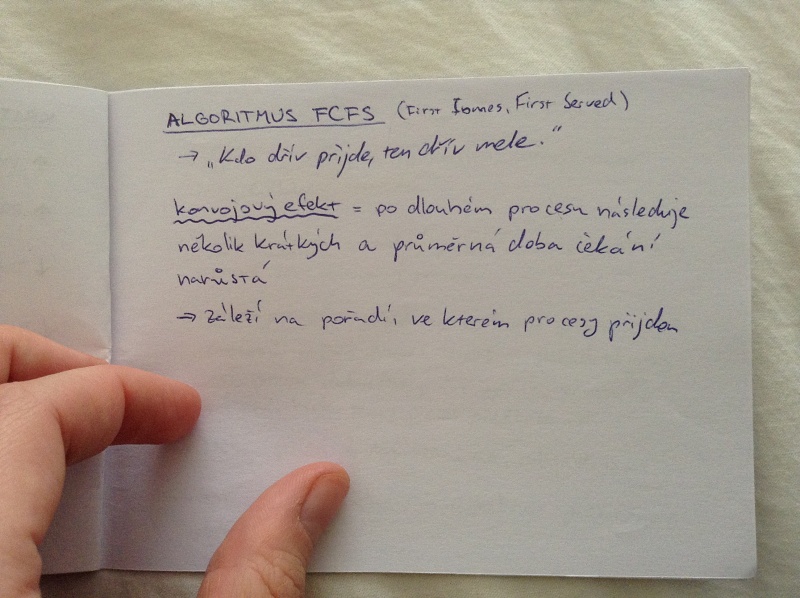 ALGORITMUS FCFS (First Comes, First Served)
→ „Kdo dřív přijde, ten dřív mele."
konvojový efekt = po dlouhém procesu následuje
několik krátkých a průměrná doba čekání
narůstá
→ záleží na pořadí, ve kterém procesy přijdou